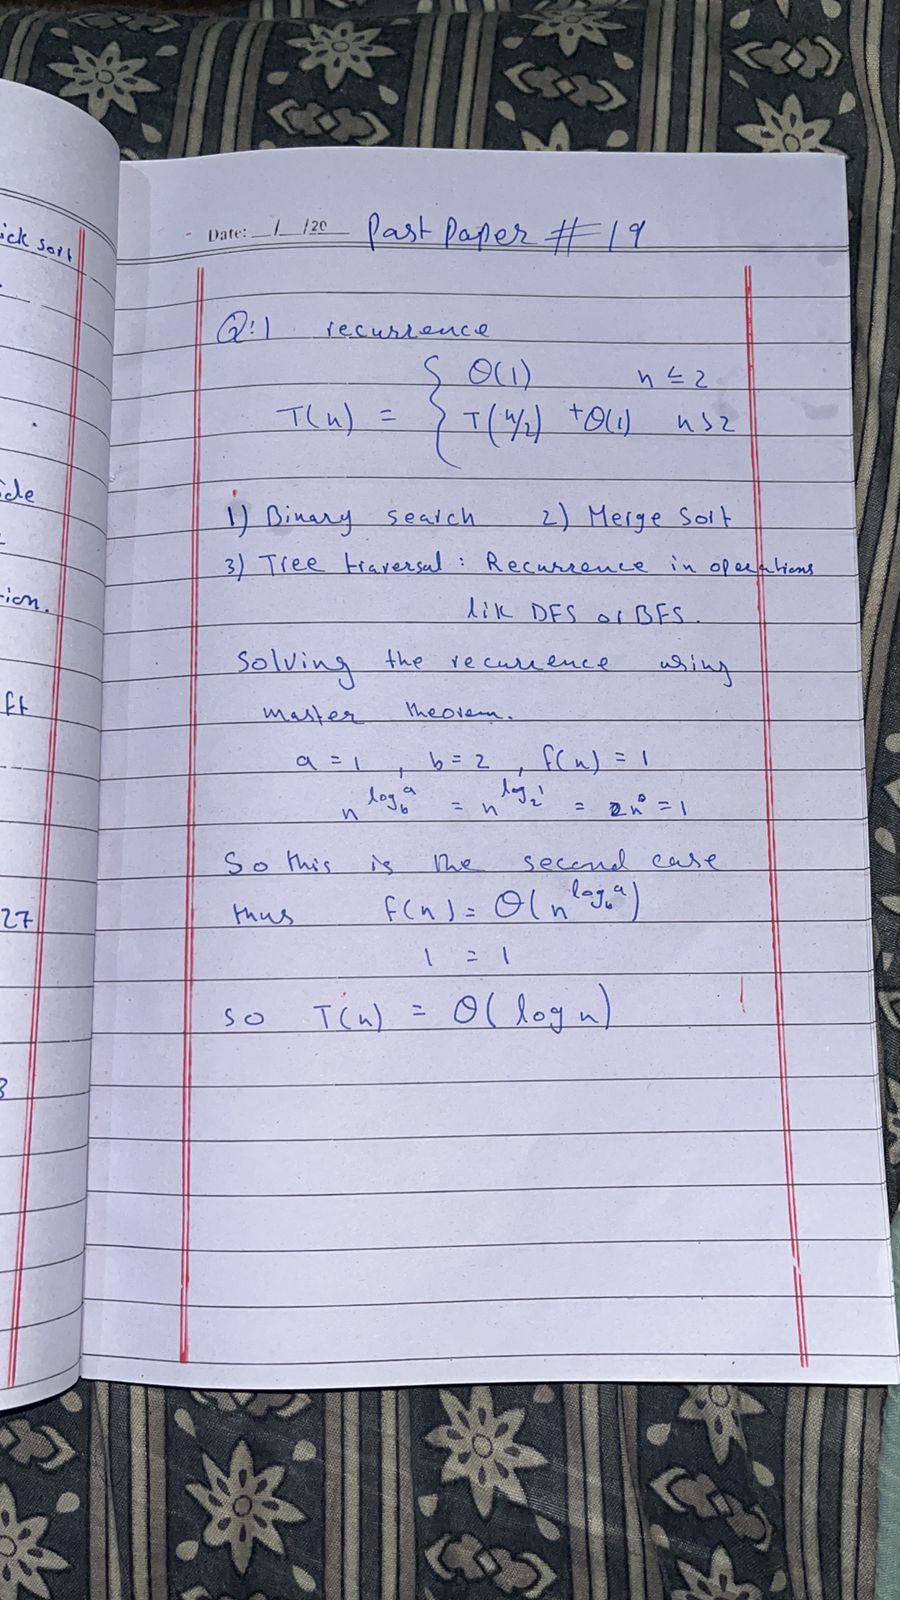 ick sort
ide
ion.
ft
27
3
Date: __/__/20__ Past Paper # 19
Q:1 recurrence
Θ(1) n ≤ 2
T(n) = { T(n/2) + Θ(1) n > 2
1) Binary search 2) Merge Sort
3) Tree traversal : Recurrence in operations
lik DFS or BFS.
Solving the recurrence using
master theorem.
a = 1 , b = 2 , f(n) = 1
n^log_b^a = n^log_2^1 = n^0 = 1
So this is the second case
thus f(n) = Θ(n^log_b^a)
1 = 1
so T(n) = Θ( log n)